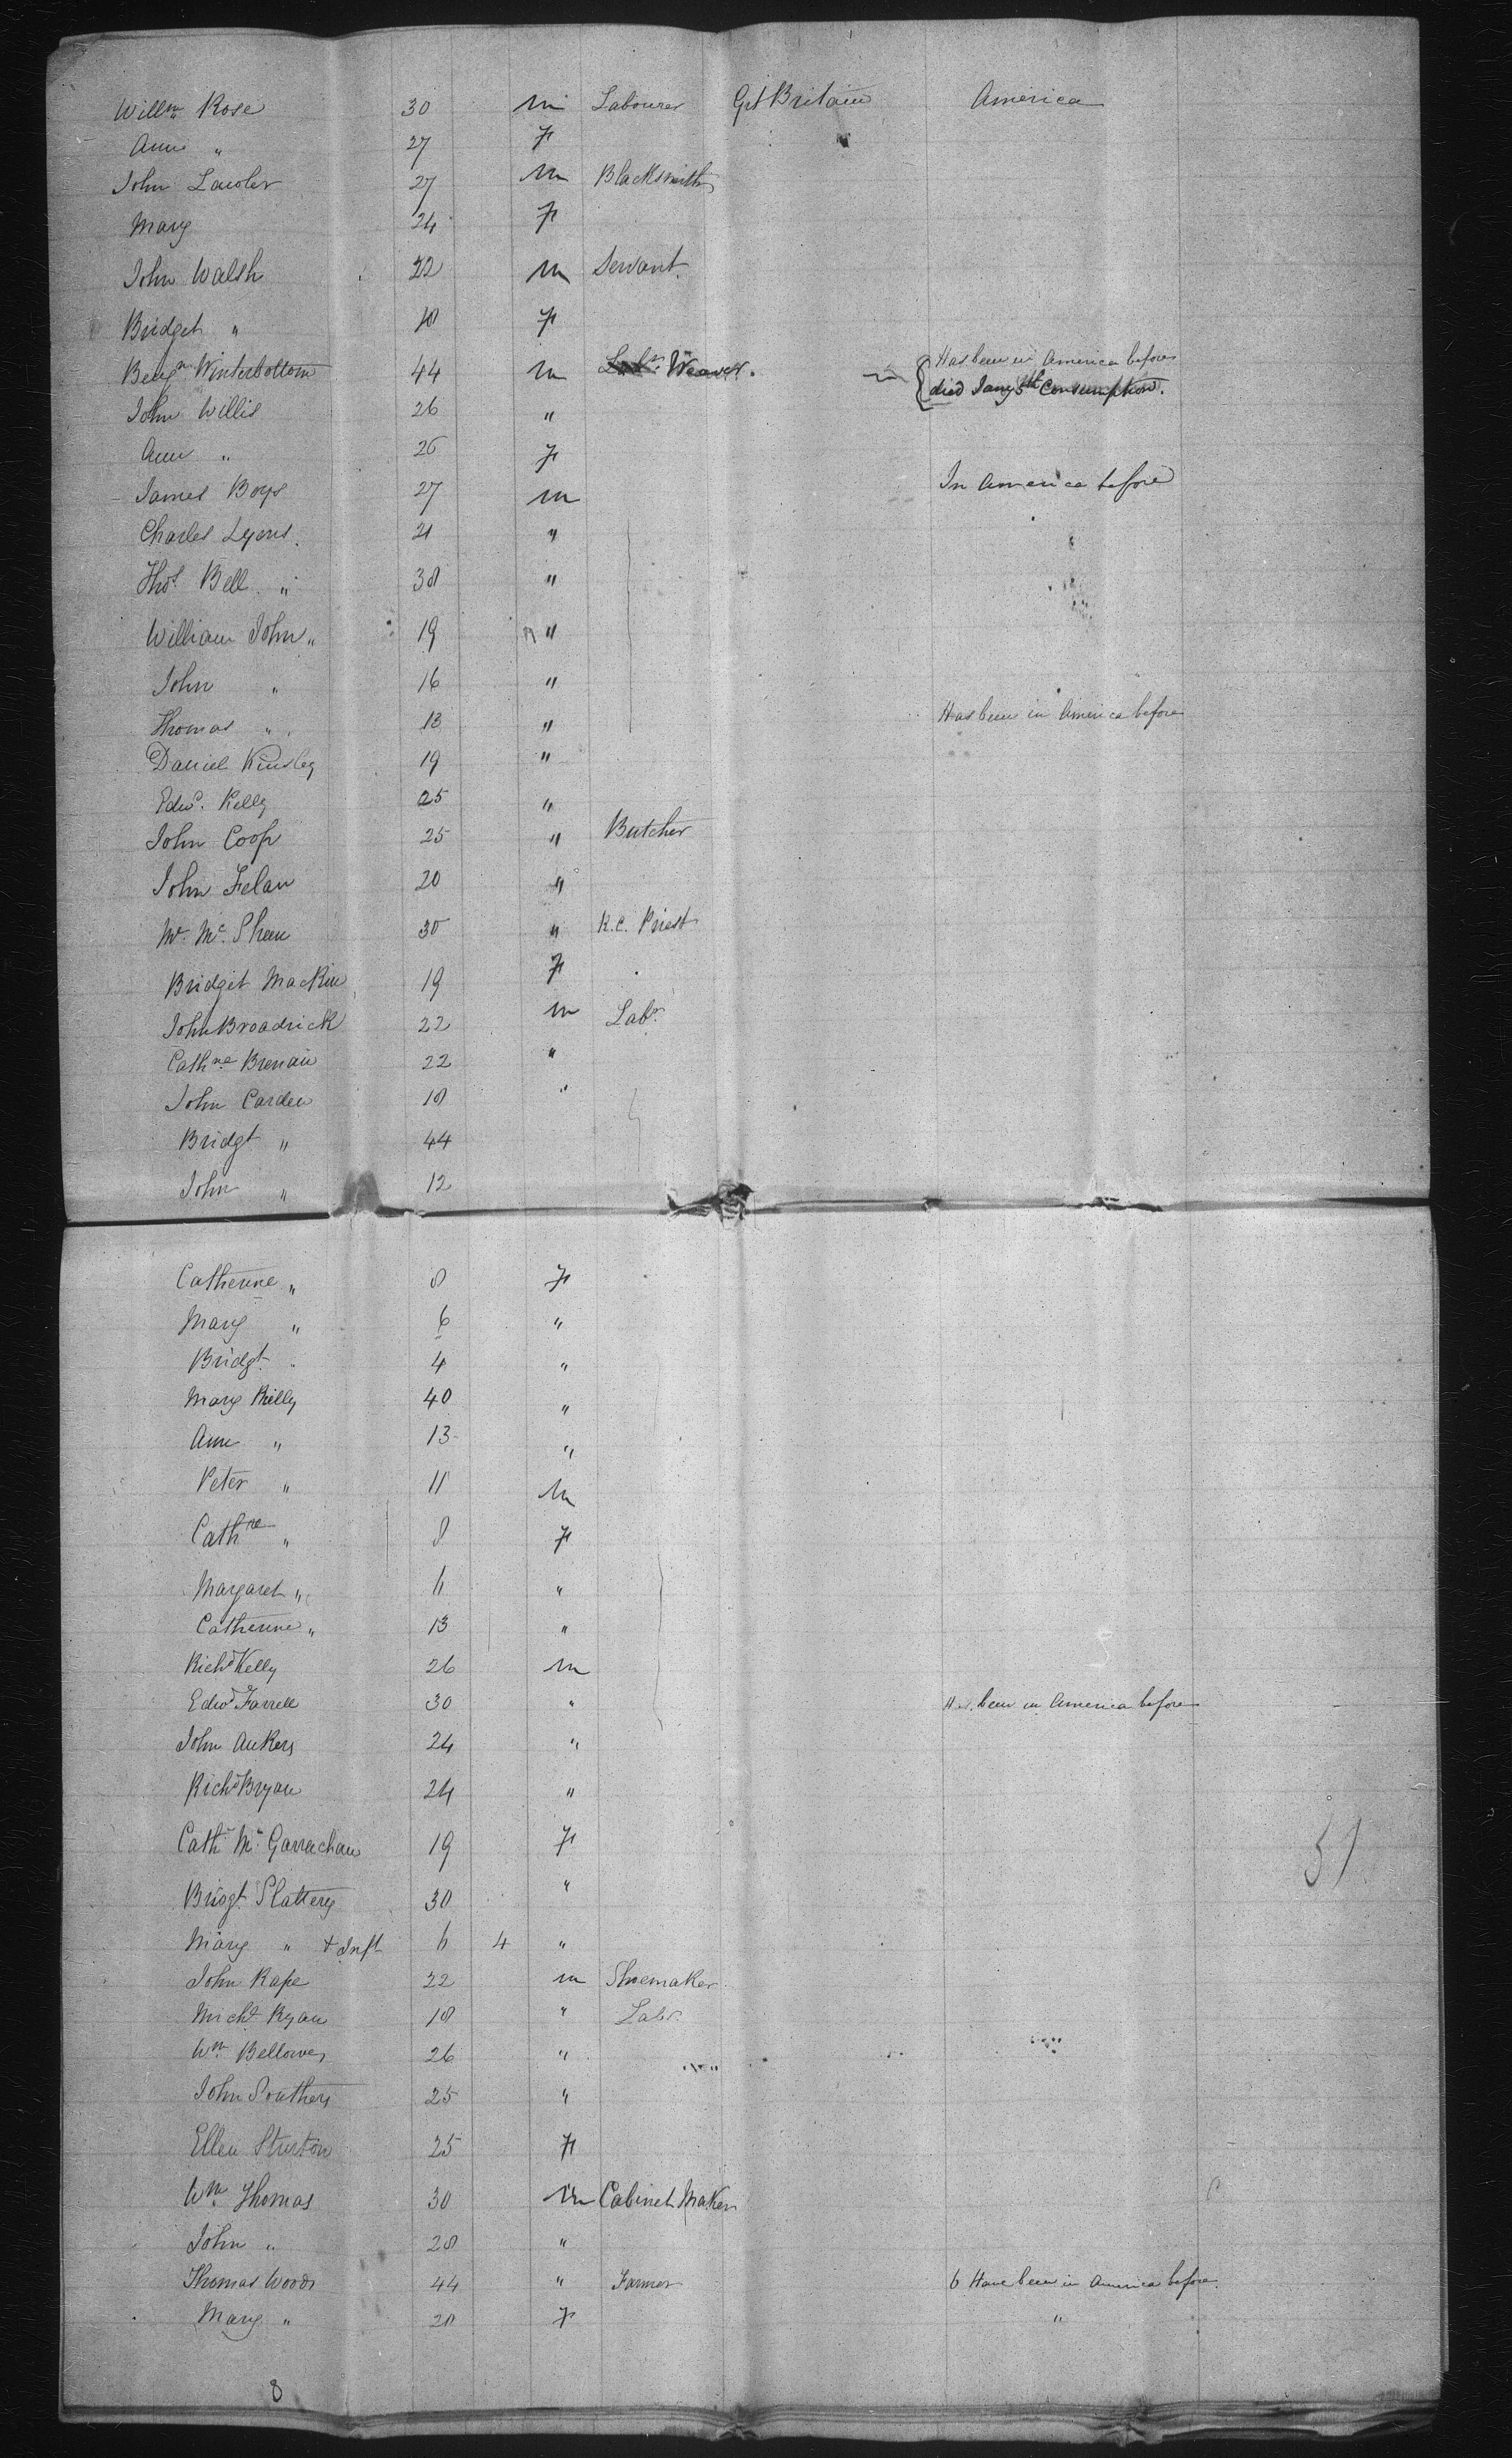 Willm Rose 30 m Labourer Gt Britain America
Ann " 27 F
John Lawler 27 m Blacksmith
Mary 24 F
John Walsh 22 m Servant.
Bridget " 18 F
Benjn Winterbottom 44 m Labr. Weaver. Has been in America before
died Jany 5th Consumption.
John Willis 26 "
Ann " 26 F
James Boys 27 m In America before
Charles Lyons. 21 "
Thos Bell " 38 "
William John " 19 "
John " 16 "
Thomas " 13 " Has been in America before
Daniel Kinsley 19 "
Edwd. Kelly 25 "
John Coop 25 " Butcher
John Felan 20 "
Mr. Mc. Shean 30 " R.C. Priest
Bridget Mackin 19 F
John Broadrick 22 m Labr.
Cathne Brenan 22 "
John Carden 18 "
Bridgt " 44
John " 12
Catherine " 8 F
Mary " 6 "
Bridgt. " 4 "
Mary Reilly 40 "
Ann " 13 "
Peter " 11 m
Cathne " 8 F
Margaret " 6 "
Catherine " 13 "
Richd Kelly 26 m
Edwd Farrell 30 " Has been in America before
John Ankers 24 "
Richd Bryan 24 "
Cath Mc Garrachan 19 F
51
Bridgt Slattery 30 "
Mary " & Inft 6 4 "
John Rape 22 m Shoemaker
Michl Ryan 18 " Labr.
Wm. Bellowes 26 "
John Southers 25 "
Ellen Sturton 25 F
Wm. Thomas 30 m Cabinet Maker
John " 28 "
Thomas Woods 44 " Farmer 6 Have been in America before.
Mary " 20 F "
8